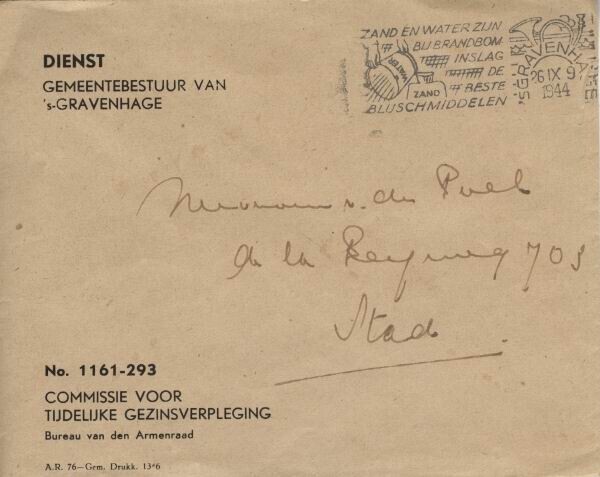 DIENST
GEMEENTEBESTUUR VAN
's-GRAVENHAGE
ZAND EN WATER ZIJN
BIJ BRANDBOM
INSLAG
DE
BESTE
BLUSCHMIDDELEN
WATER
ZAND
'S-GRAVENHAGE
26 IX 9
1944
Mevrouw v. der Poel
de la Reyweg 703
Stad
No. 1161-293
COMMISSIE VOOR
TIJDELIJKE GEZINSVERPLEGING
Bureau van den Armenraad
A.R. 76—Gem. Drukk. 1346